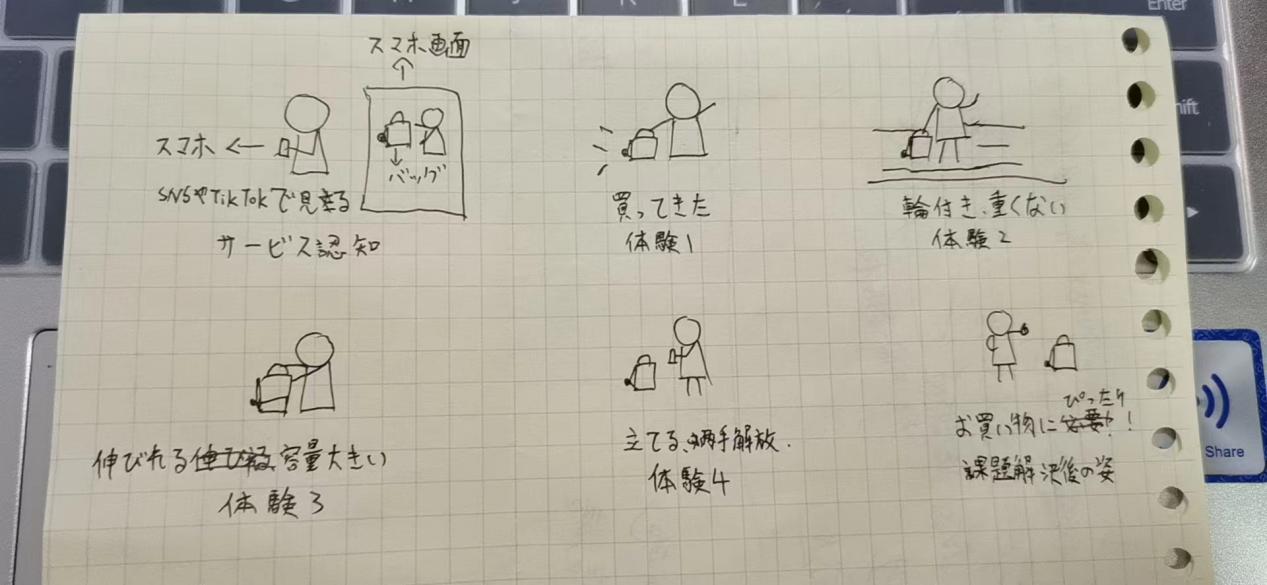 スマホ画面
スマホ
バッグ
SNSやTikTokで見率る
サービス認知
買ってきた
体験1
輪付き、重くない
体験2
伸びれる 容量大きい
体験3
立てる、両手解放.
体験4
ぴったり
お買い物に必要!!
課題解決後の姿
Enter
Shift
Share